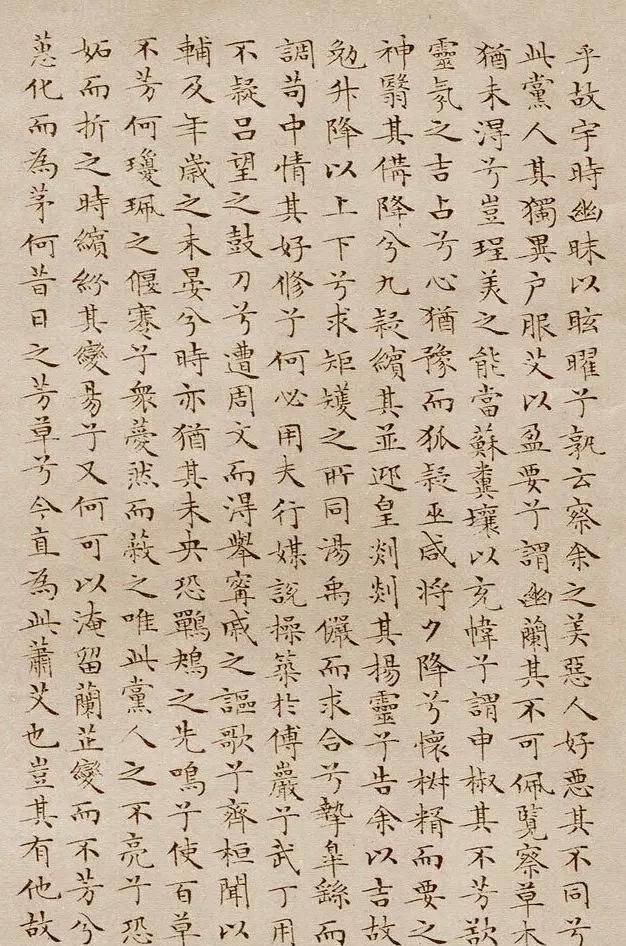 乎故宇時幽昧以眩曜兮孰云察余之美惡人好惡其不同兮
此黨人其獨異户服艾以盈要兮謂幽蘭其不可佩覽察草木
猶未淂兮豈珵美之能當蘇糞壤以充幃兮謂申椒其不芳欲
靈氛之吉占兮心猶豫而狐疑巫咸將夕降兮懷椒糈而要之
神翳其備降兮九疑繽其並迎皇剡剡其揚靈兮告余以吉故
勉升降以上下兮求矩矱之所同湯禹儼而求合兮摯皐繇而
調苟中情其好修兮何必用夫行媒說操築於傅巖兮武丁用
不疑吕望之鼓刀兮遭周文而淂舉甯戚之謳歌兮齊桓聞以
輔及年歲之未晏兮時亦猶其未央恐鶗鴂之先鳴兮使百草
不芳何瓊珮之偃蹇兮衆薆然而蔽之唯此黨人之不亮兮恐
妬而折之時繽紛其變易兮又何可以淹留蘭芷變而不芳兮
蕙化而為茅何昔日之芳草兮今直為此蕭艾也豈其有他故